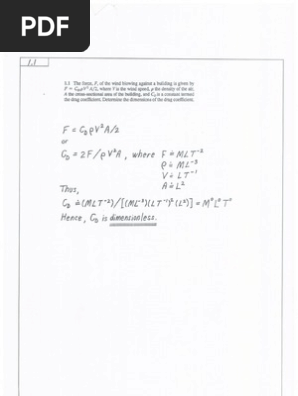 PDF
1.1
1.1 The force, F, of the wind blowing against a building is given by
F = C_D ρV²A/2, where V is the wind speed, ρ the density of the air,
A the cross-sectional area of the building, and C_D is a constant termed
the drag coefficient. Determine the dimensions of the drag coefficient.
F = C_D ρV²A/2
or
C_D = 2F/ρV²A, where F ≐ MLT⁻²
ρ ≐ ML⁻³
V ≐ LT⁻¹
A ≐ L²
Thus,
C_D ≐ (MLT⁻²)/[(ML⁻³)(LT⁻¹)²(L²)] = M⁰L⁰T⁰
Hence, C_D is dimensionless.